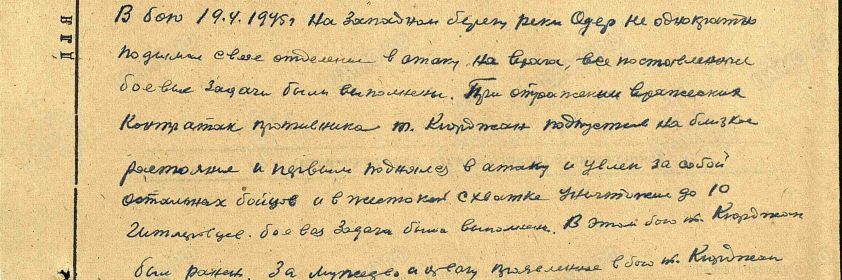 В бою 19.4.1945г на западном берегу реки Одер не однократно
поднимая свое отделение в атаку на врага, все поставленные
боевые задачи были выполнены. При отражении вражеских
контратак противника т. Кюрджан подпустив на близкое
растояние и первым поднялся в атаку и увлек за собой
остальных бойцов и в жестокой схватке уничтожил до 10
гитлеровцев. боевая задача была выполнена. В этом бою т. Кюрджан
был ранен. За мужество и отвагу проявленное в бою т. Кюрджан